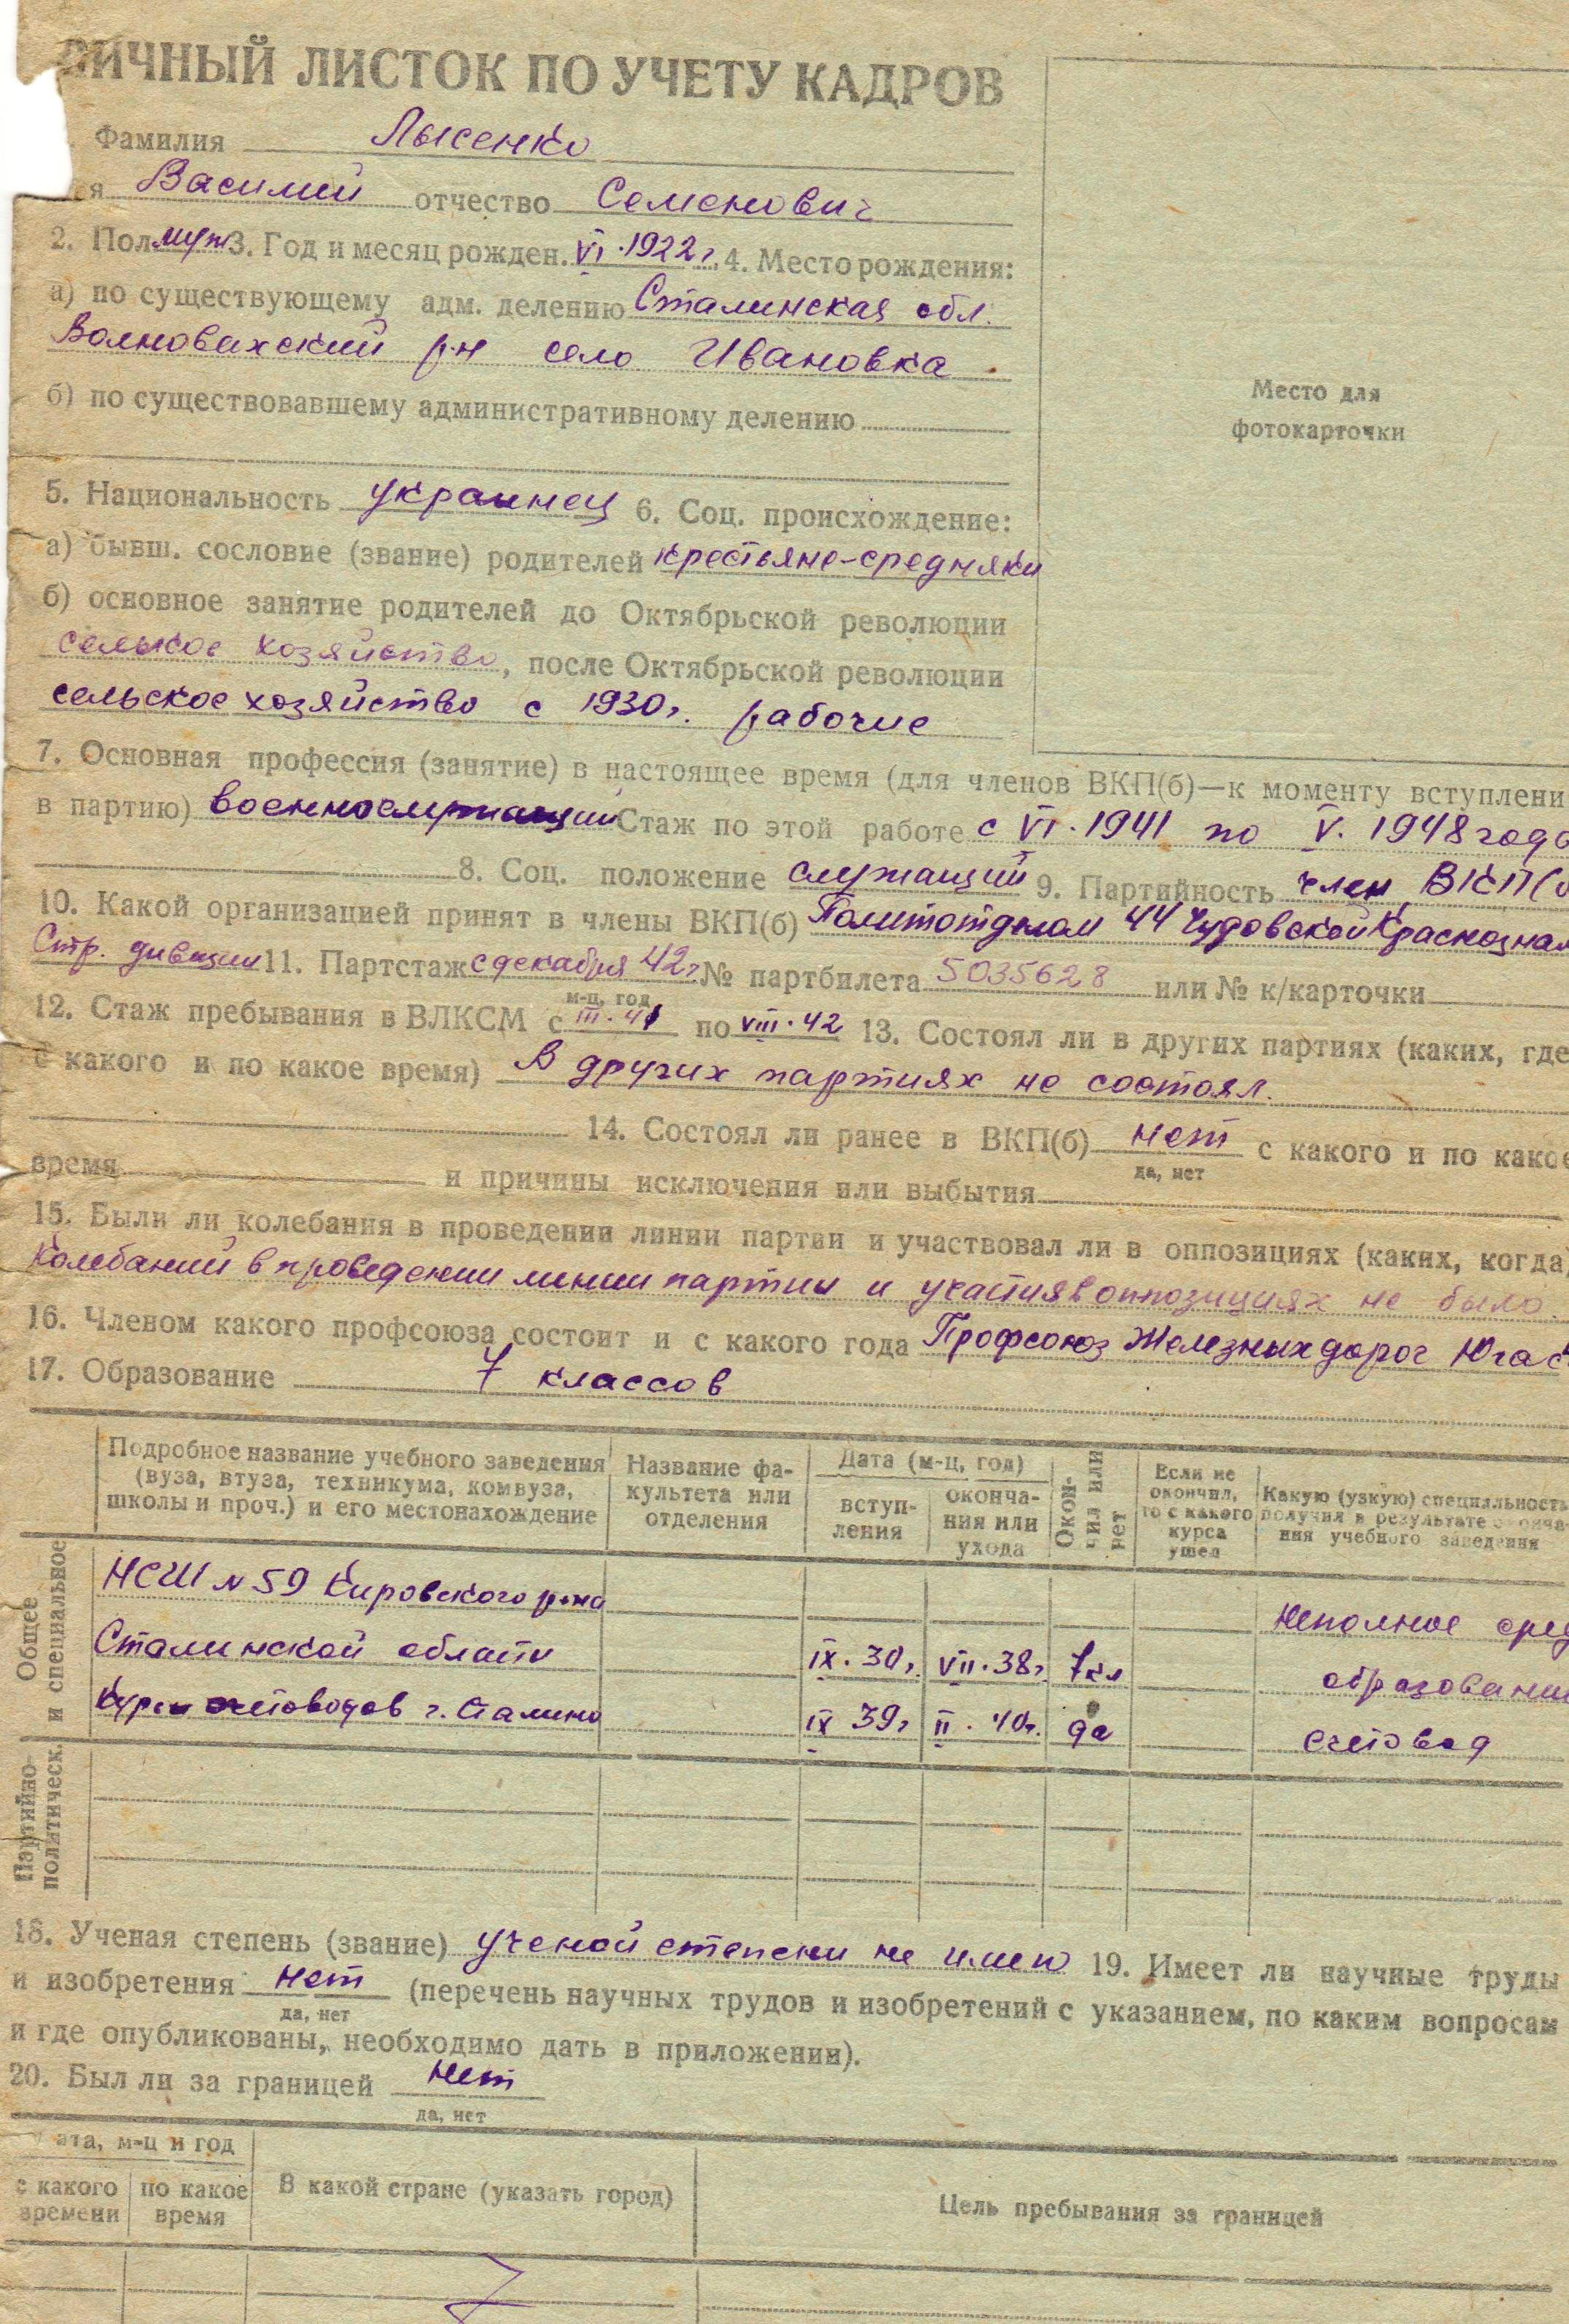 ЛИЧНЫЙ ЛИСТОК ПО УЧЕТУ КАДРОВ
Фамилия Лысенко
Василий отчество Семенович
2. Пол муж 3. Год и месяц рожден. VI.1922г. 4. Место рождения:
а) по существующему адм. делению Сталинская обл.
Волновахский р-н село Ивановка.
б) по существовавшему административному делению
Место для
фотокарточки
5. Национальность украинец 6. Соц. происхождение:
а) бывш. сословие (звание) родителей крестьяне-средняки
б) основное занятие родителей до Октябрьской революции
сельское хозяйство, после Октябрьской революции
сельское хозяйство с 1930г. рабочие
7. Основная профессия (занятие) в настоящее время (для членов ВКП(б)—к моменту вступлени
в партию) военнослужащий Стаж по этой работе с VI.1941 по V.1948 года
8. Соц. положение служащий 9. Партийность член ВКП(б
10. Какой организацией принят в члены ВКП(б) Политотделом 44 Чудовской Краснознам
Стр. дивизии 11. Партстаж с декабря 42г № партбилета 5035628 или № к/карточки
м-ц, год
12. Стаж пребывания в ВЛКСМ с III.41 по VIII.42 13. Состоял ли в других партиях (каких, где
с какого и по какое время) В других партиях не состоял.
14. Состоял ли ранее в ВКП(б) нет с какого и по какое
да, нет
время и причины исключения или выбытия
15. Были ли колебания в проведении линии партии и участвовал ли в оппозициях (каких, когда)
Колебаний в проведении линии партии и участия в оппозициях не было.
16. Членом какого профсоюза состоит и с какого года Профсоюз Железных дорог Юга с
17. Образование 7 классов
Подробное название учебного заведения (вуза, втуза, техникума, комвуза, школы и проч.) и его местонахождение
Название факультета или отделения
Дата (м-ц, год)
вступления
окончания или ухода
Окончил или нет
Если не окончил, то с какого курса ушел
Какую (узкую) специальность получил в результате окончания учебного заведения
Общее и специальное
НСШ № 59 Кировского р-на
Неполное сред
Сталинской области IX.30г. VII.38г. 7кл образовани
Курсы счетоводов г. Сталино IX 39г II.40г. да счетовод
Партийно-политическ.
18. Ученая степень (звание) ученой степени не имею 19. Имеет ли научные труды
и изобретения нет (перечень научных трудов и изобретений с указанием, по каким вопросам
да, нет
и где опубликованы, необходимо дать в приложении).
20. Был ли за границей нет
да, нет
ата, м-ц и год
с какого времени
по какое время
В какой стране (указать город)
Цель пребывания за границей